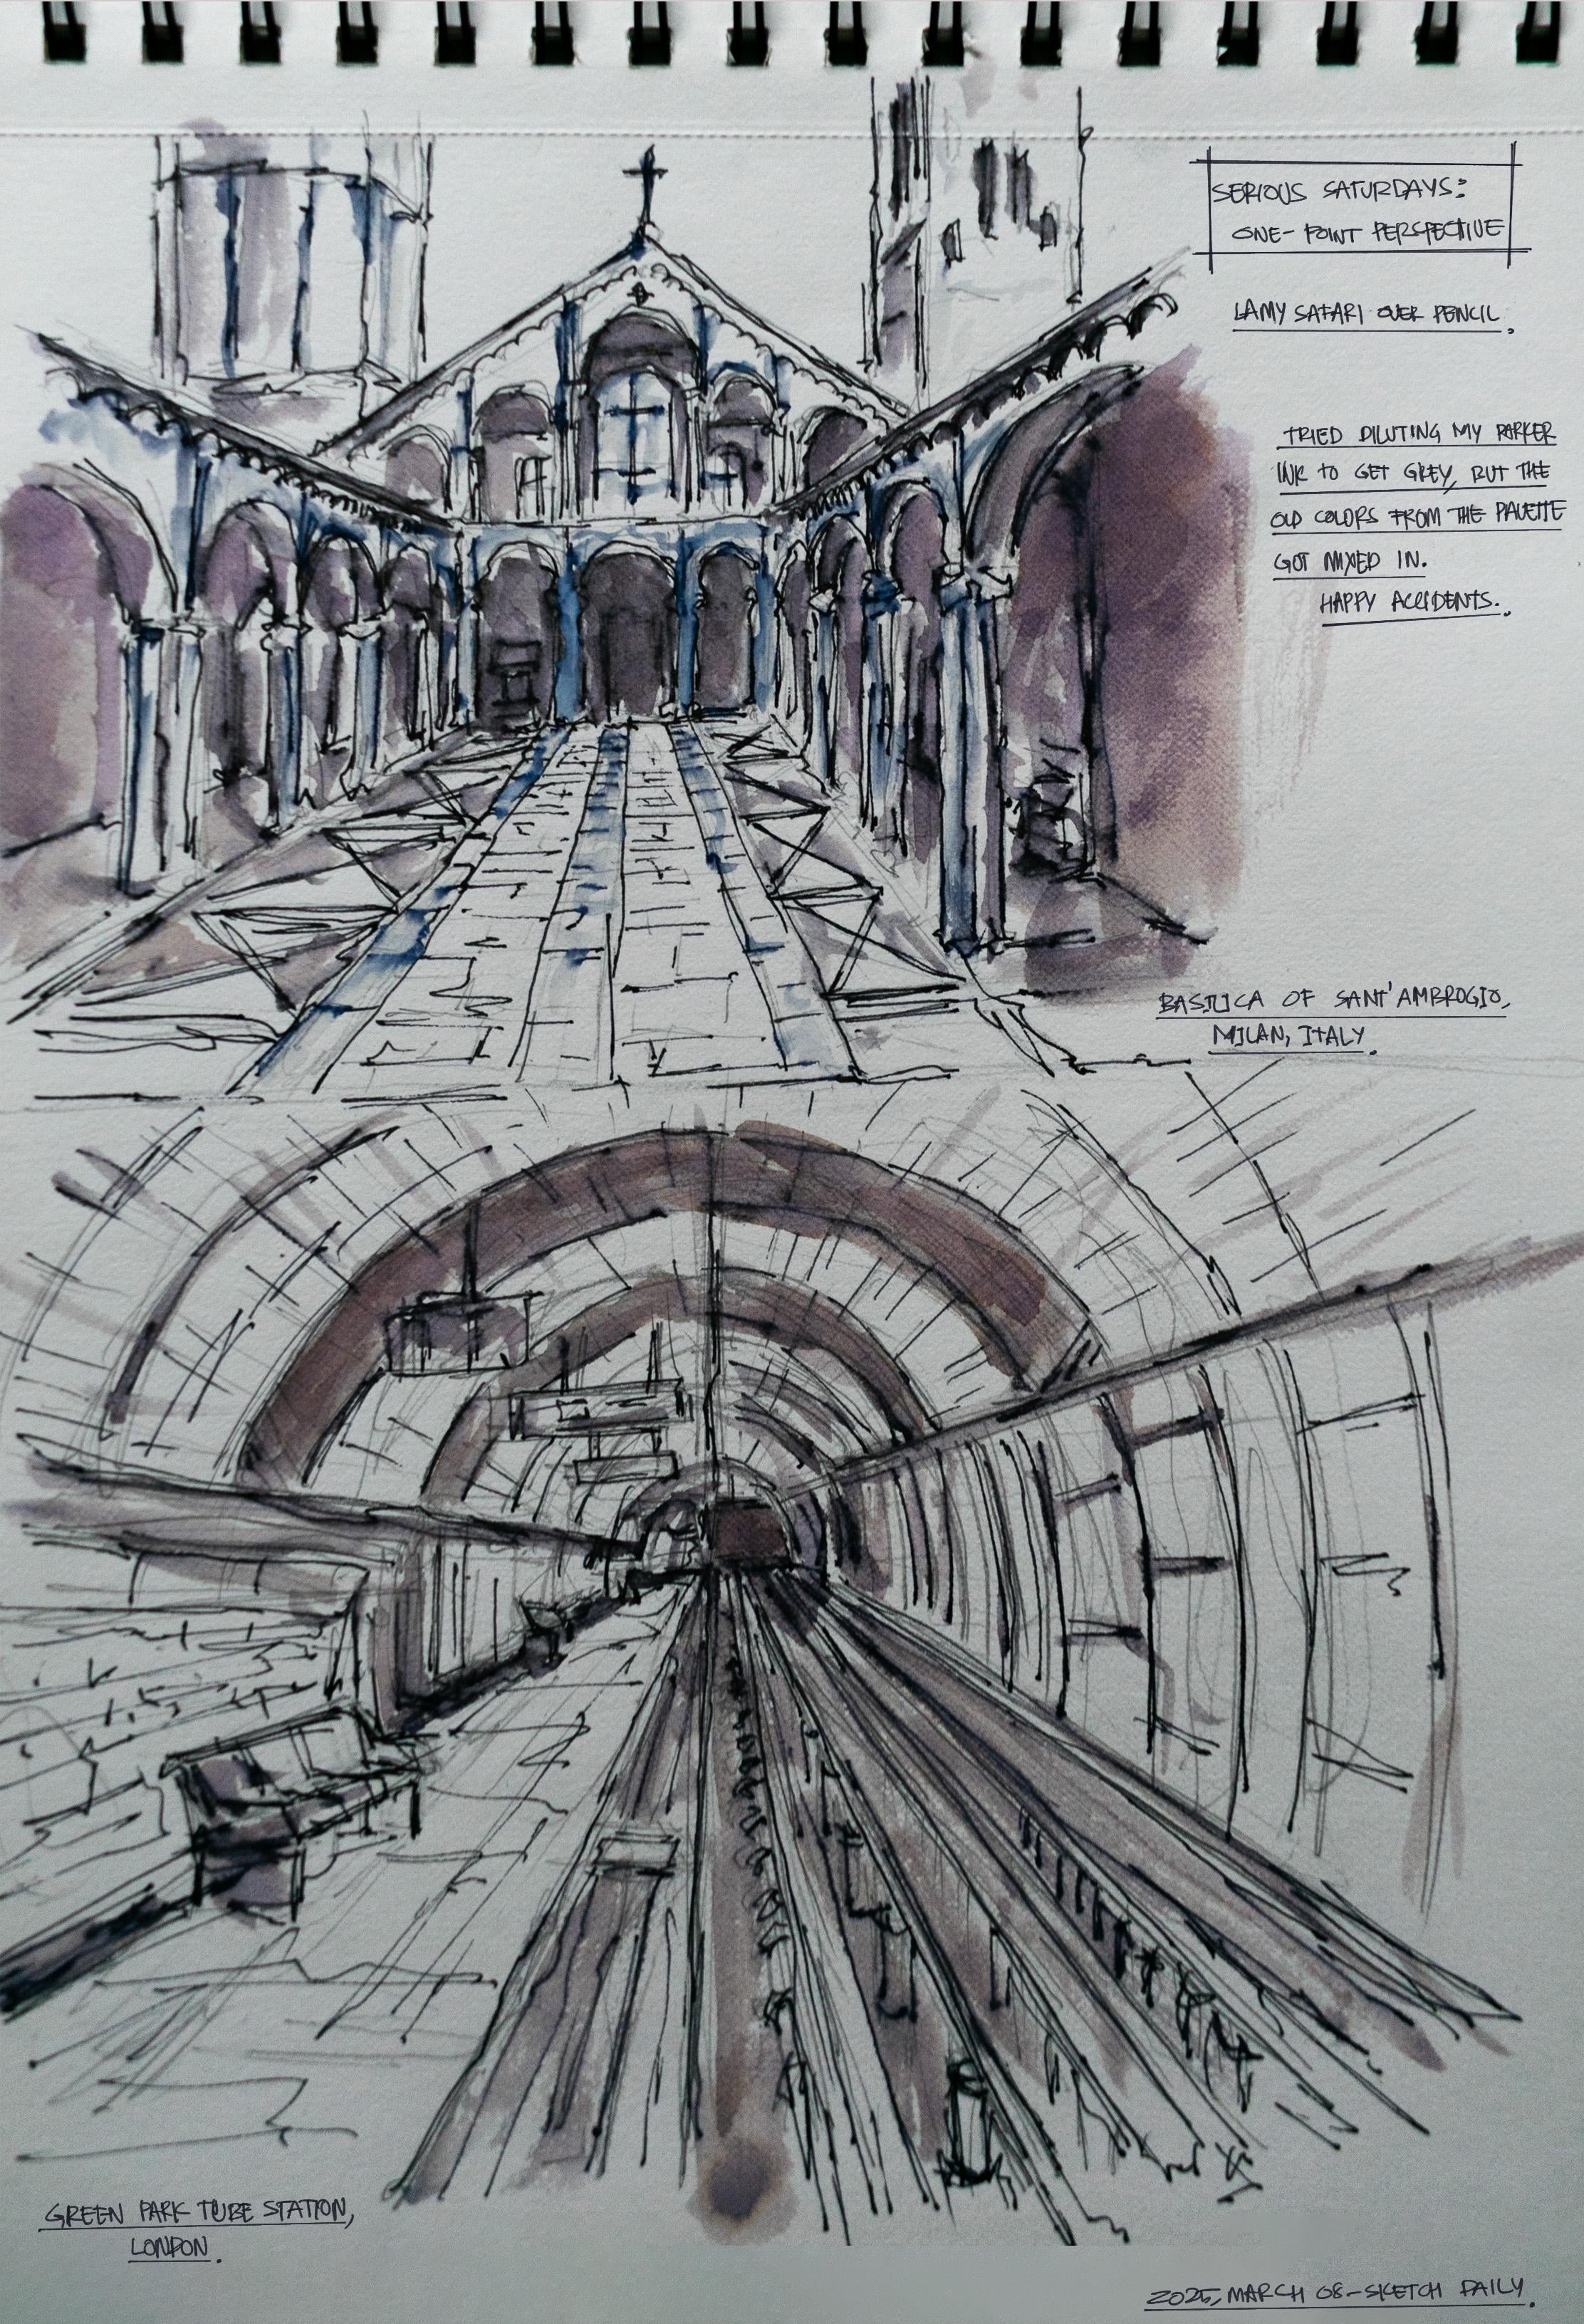 SERIOUS SATURDAYS:
ONE-POINT PERSPECTIVE
LAMY SAFARI OVER PENCIL.
TRIED DILUTING MY PARKER
INK TO GET GREY, BUT THE
OLD COLORS FROM THE PALETTE
GOT MIXED IN.
HAPPY ACCIDENTS.
BASILICA OF SANT'AMBROGIO,
MILAN, ITALY.
GREEN PARK TUBE STATION,
LONDON.
2025, MARCH 08-SKETCH DAILY.